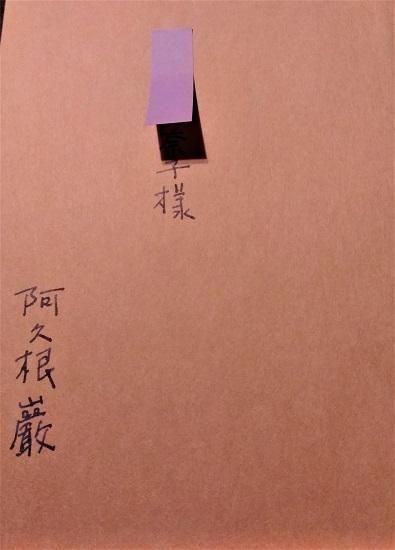 子様
阿久根巖